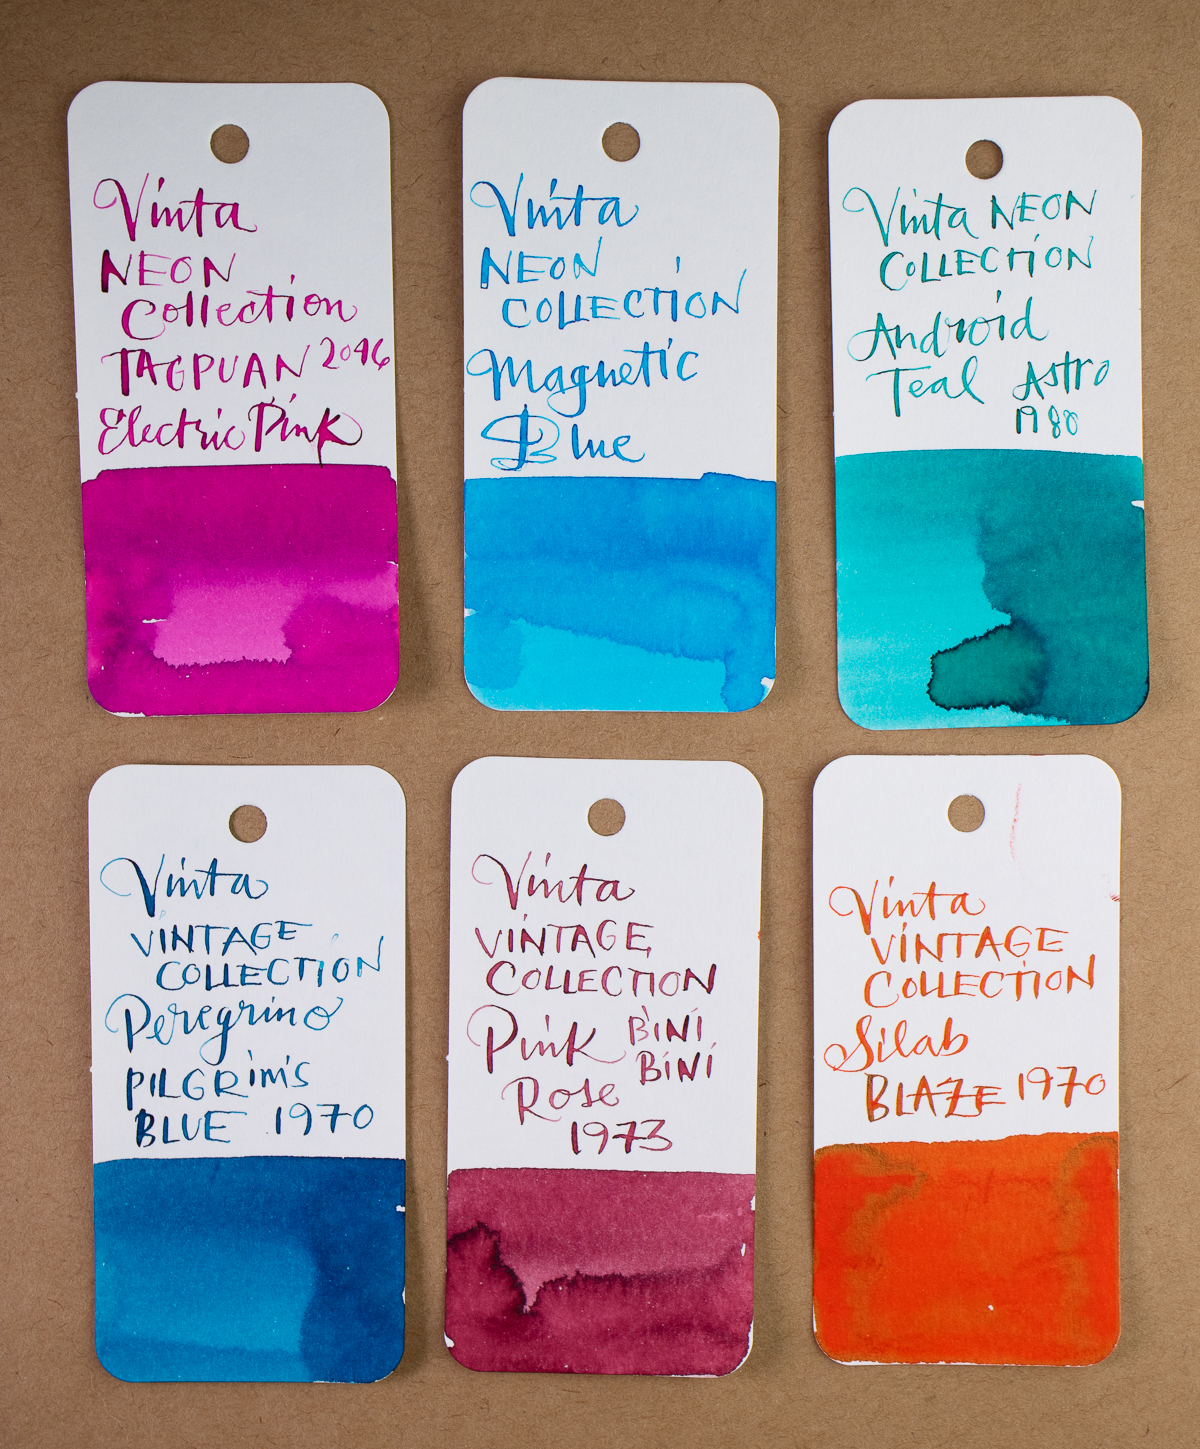 Vinta
NEON
Collection
TAGPUAN 2046
Electric Pink
Vinta
NEON
COLLECTION
Magnetic
Blue
Vinta NEON
COLLECTION
Android
Teal Astro
1980
Vinta
VINTAGE
COLLECTION
Peregrino
PILGRIM'S
BLUE 1970
Vinta
VINTAGE
COLLECTION
Pink BINI
Rose BINI
1973
Vinta
VINTAGE
COLLECTION
Silab
BLAZE 1970